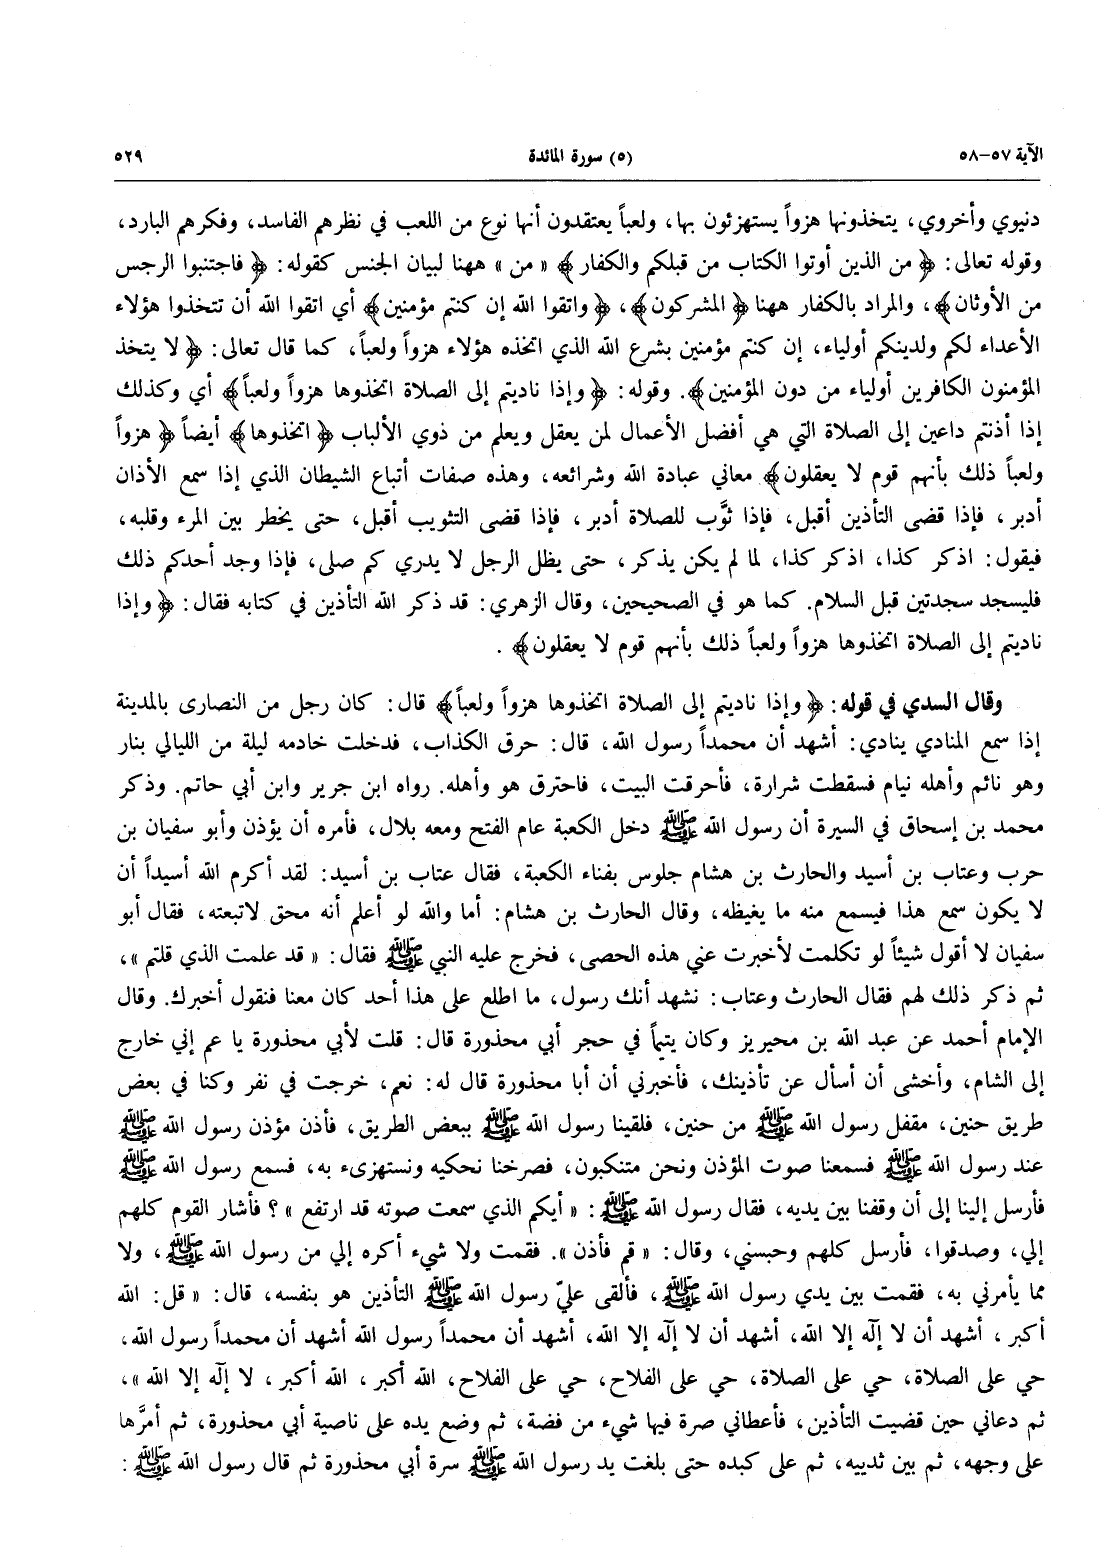 الآية ٥٧-٥٨ (٥) سورة المائدة ٥٢٩
دنيوي وأخروي، يتخذونها هزواً يستهزئون بها، ولعباً يعتقدون أنها نوع من اللعب في نظرهم الفاسد، وفكرهم البارد،
وقوله تعالى: ﴿من الذين أوتوا الكتاب من قبلكم والكفار﴾ «من» ههنا لبيان الجنس كقوله: ﴿فاجتنبوا الرجس
من الأوثان﴾، والمراد بالكفار ههنا ﴿المشركون﴾، ﴿واتقوا الله إن كنتم مؤمنين﴾ أي اتقوا الله أن تتخذوا هؤلاء
الأعداء لكم ولدينكم أولياء، إن كنتم مؤمنين بشرع الله الذي اتخذه هؤلاء هزواً ولعباً، كما قال تعالى: ﴿لا يتخذ
المؤمنون الكافرين أولياء من دون المؤمنين﴾. وقوله: ﴿وإذا ناديتم إلى الصلاة اتخذوها هزواً ولعباً﴾ أي وكذلك
إذا أذنتم داعين إلى الصلاة التي هي أفضل الأعمال لمن يعقل ويعلم من ذوي الألباب ﴿اتخذوها﴾ أيضاً ﴿هزواً
ولعباً ذلك بأنهم قوم لا يعقلون﴾ معاني عبادة الله وشرائعه، وهذه صفات أتباع الشيطان الذي إذا سمع الأذان
أدبر، فإذا قضى التأذين أقبل، فإذا ثوَّب للصلاة أدبر، فإذا قضى التثويب أقبل، حتى يخطر بين المرء وقلبه،
فيقول: اذكر كذا، اذكر كذا، لما لم يكن يذكر، حتى يظل الرجل لا يدري كم صلى، فإذا وجد أحدكم ذلك
فليسجد سجدتين قبل السلام. كما هو في الصحيحين، وقال الزهري: قد ذكر الله التأذين في كتابه فقال: ﴿وإذا
ناديتم إلى الصلاة اتخذوها هزواً ولعباً ذلك بأنهم قوم لا يعقلون﴾.
وقال السدي في قوله: ﴿وإذا ناديتم إلى الصلاة اتخذوها هزواً ولعباً﴾ قال: كان رجل من النصارى بالمدينة
إذا سمع المنادي ينادي: أشهد أن محمداً رسول الله، قال: حرق الكذاب، فدخلت خادمه ليلة من الليالي بنار
وهو نائم وأهله نيام فسقطت شرارة، فأحرقت البيت، فاحترق هو وأهله. رواه ابن جرير وابن أبي حاتم. وذكر
محمد بن إسحاق في السيرة أن رسول الله ﷺ دخل الكعبة عام الفتح ومعه بلال، فأمره أن يؤذن وأبو سفيان بن
حرب وعتاب بن أسيد والحارث بن هشام جلوس بفناء الكعبة، فقال عتاب بن أسيد: لقد أكرم الله أسيداً أن
لا يكون سمع هذا فيسمع منه ما يغيظه، وقال الحارث بن هشام: أما والله لو أعلم أنه محق لاتبعته، فقال أبو
سفيان لا أقول شيئاً لو تكلمت لأخبرت عني هذه الحصى، فخرج عليه النبي ﷺ فقال: «قد علمت الذي قلتم»،
ثم ذكر ذلك لهم فقال الحارث وعتاب: نشهد أنك رسول، ما اطلع على هذا أحد كان معنا فنقول أخبرك. وقال
الإمام أحمد عن عبد الله بن محيريز وكان يتيماً في حجر أبي محذورة قال: قلت لأبي محذورة يا عم إني خارج
إلى الشام، وأخشى أن أسأل عن تأذينك، فأخبرني أن أبا محذورة قال له: نعم، خرجت في نفر وكنا في بعض
طريق حنين، مقفل رسول الله ﷺ من حنين، فلقينا رسول الله ﷺ ببعض الطريق، فأذن مؤذن رسول الله ﷺ
عند رسول الله ﷺ فسمعنا صوت المؤذن ونحن متنكبون، فصرخنا نحكيه ونستهزىء به، فسمع رسول الله ﷺ
فأرسل إلينا إلى أن وقفنا بين يديه، فقال رسول الله ﷺ: «أيكم الذي سمعت صوته قد ارتفع»؟ فأشار القوم كلهم
إلي، وصدقوا، فأرسل كلهم وحبسني، وقال: «قم فأذن». فقمت ولا شيء أكره إلي من رسول الله ﷺ، ولا
مما يأمرني به، فقمت بين يدي رسول الله ﷺ، فألقى عليّ رسول الله ﷺ التأذين هو بنفسه، قال: «قل: الله
أكبر، أشهد أن لا إلٓه إلا الله، أشهد أن لا إلٓه إلا الله، أشهد أن محمداً رسول الله أشهد أن محمداً رسول الله،
حي على الصلاة، حي على الصلاة، حي على الفلاح، حي على الفلاح، الله أكبر، الله أكبر، لا إلٓه إلا الله»،
ثم دعاني حين قضيت التأذين، فأعطاني صرة فيها شيء من فضة، ثم وضع يده على ناصية أبي محذورة، ثم أمرَّها
على وجهه، ثم بين ثدييه، ثم على كبده حتى بلغت يد رسول الله ﷺ سرة أبي محذورة ثم قال رسول الله ﷺ: